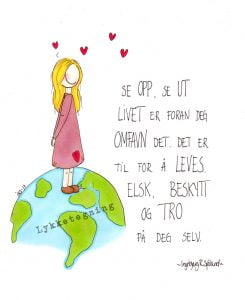 SE OPP, SE UT
LIVET ER FORAN DEG
OMFAVN DET. DET ER
TIL FOR Å LEVES.
ELSK, BESKYTT
OG TRO
PÅ DEG SELV.
Lykketegning